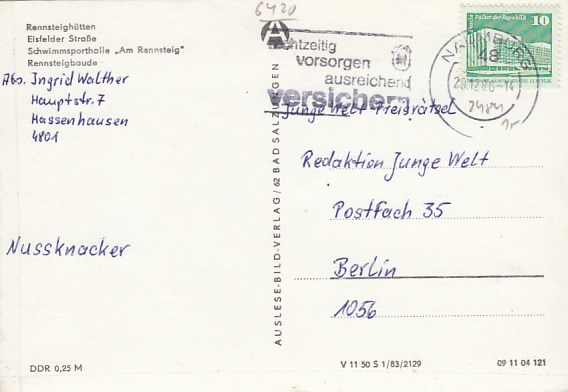 6420
Rennsteighütten
Eisfelder Straße
Schwimmsporthalle „Am Rennsteig"
Rennsteigbaude
Abs. Ingrid Walther
Hauptstr. 7
Hassenhausen
4801
Nussknacker
DDR 0,25 M
AUSLESE-BILD-VERLAG / 62 BAD SALZUNGEN
vorsorgen
ausreichend
versichern
NAUMBURG
48
Palast der Republik
10
Junge Welt Preisrätsel
Redaktion Junge Welt
Postfach 35
Berlin
1056
V 11 50 S 1/83/2129
09 11 04 121